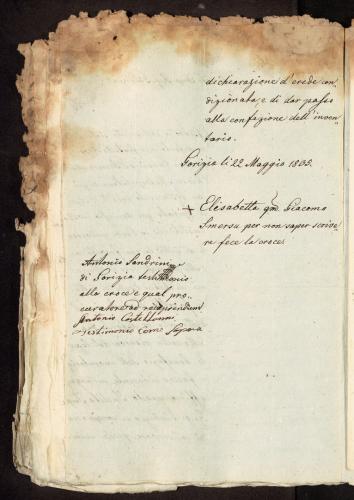 dichiarazione d'erede con
dizionata e di dar passo
alla confazione dell'inven
tario.
Gorizia li 22 Maggio 1835.
+ Elisabetta qm Giacomo
Smersu per non saper scrive
re fece la croce
Antonio Sandrini
di Gorizia testimonio
alla croce e qual pro
curatore ad
Antonio Castellani
Testimonio come sopra